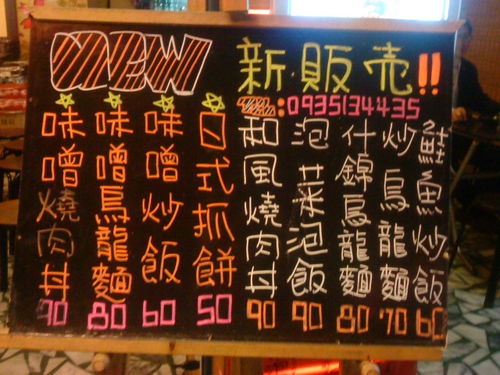 NEW 新販売!!
電話:0935134435
味噌燒肉丼 90
味噌烏龍麵 80
味噌炒飯 60
日式抓餅 50
和風燒肉丼 90
泡菜泡飯 90
什錦烏龍麵 80
炒烏龍麵 70
鮭魚炒飯 60